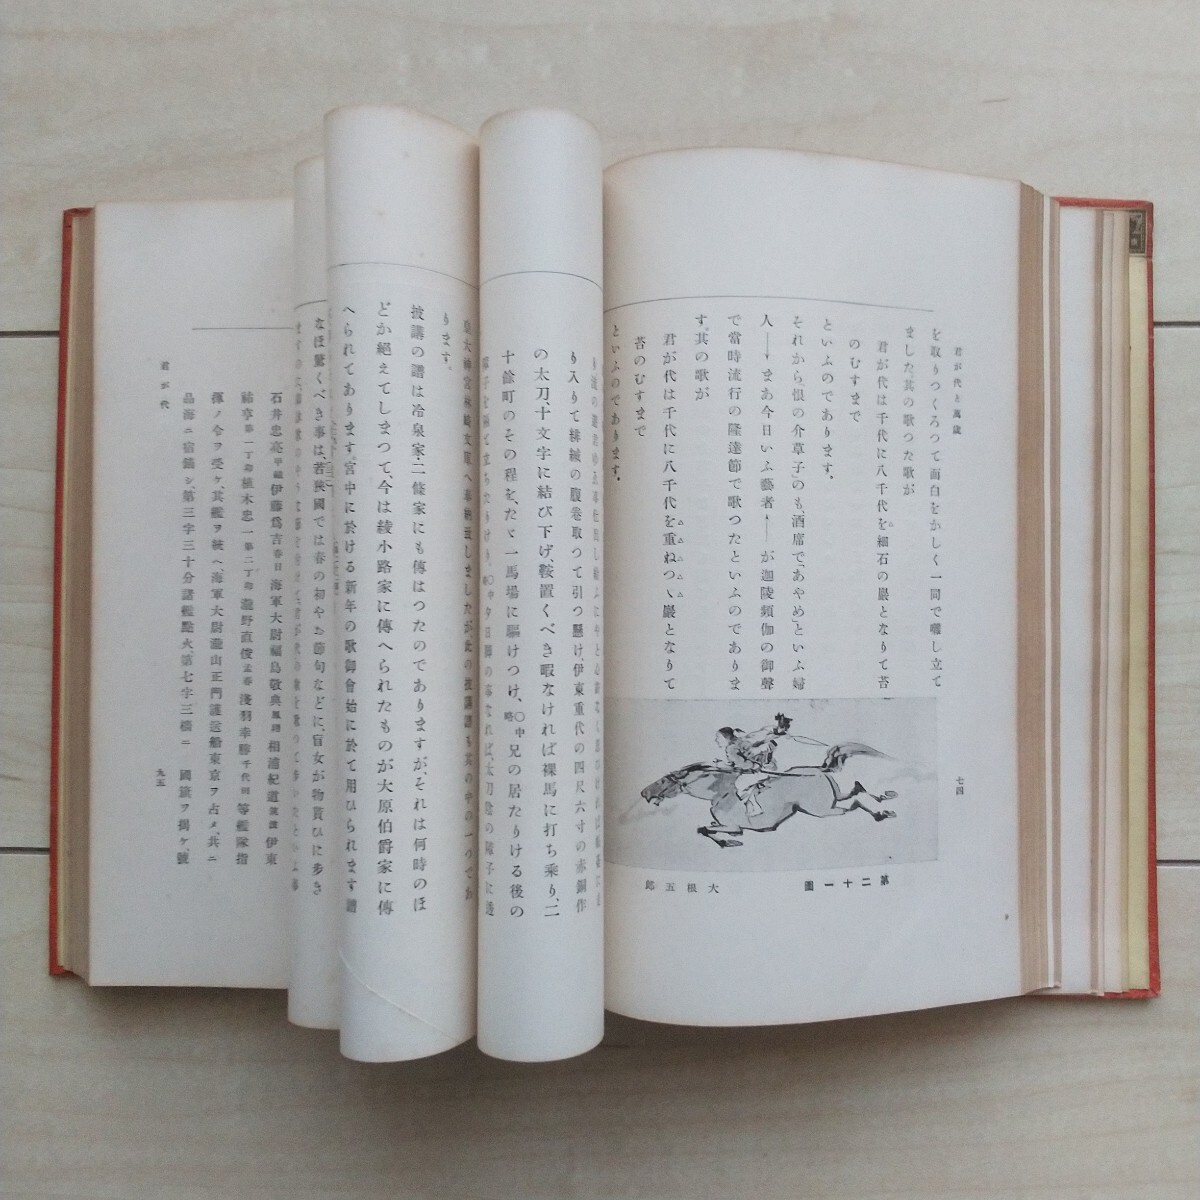 君が代と萬歳
七四
を取りつくろつて面白をかしく一同で囃し立て
ました。其の歌つた歌が
君が代は千代に八千代を細石の巖となりて苔
のむすまで
といふのであります。
それから、「恨の介草子」のも、酒席で、「あやめ」といふ婦
人――まあ今日いふ藝者――が迦陵頻伽の御聲
で當時流行の隆達節で歌つたといふのでありま
す。其の歌が
君が代は千代に八千代を重ねつゝ巖となりて
苔のむすまで
といふのであります。
第二十一圖
大根五郎
り入りて緋縅の腹卷取つて引つ懸け、伊東重代の四尺六寸の赤銅作
の太刀、十文字に結び下げ、鞍置くべき暇なければ裸馬に打ち乘り、二
十餘町のその程を、たゞ一馬場に驅けつけ、〇中略兄の居たりける後の
皇大神宮林崎文庫へ奉納致しましたが、此の披講譜も其の中の一つであ
ります。
披講の譜は冷泉家・二條家にも傳はつたのでありますが、それは何時のほ
どか絕えてしまつて、今は綾小路家に傳へられたものが大原伯爵家に傳
へられてあります。宮中に於ける新年の歌御會始に於て用ひられます譜
なほ驚くべき事は、若狹國では春の初やお節句などに、盲女が物貰ひに步き
石井忠亮甲鐵伊藤爲吉春日海軍大尉福島敬典鳳翔相浦紀道筑波伊東
祐亨第一丁卯植木忠一第二丁卯瀧野直俊孟春淺羽幸勝千代田等艦隊指
揮ノ令ヲ受ケ、其艦ヲ統ヘ、海軍大尉瀧山正門護送船東京ヲ占メ、共ニ
品海ニ宿錨シ、第三字三十分諸艦點火、第七字三檣ニ國旗ヲ揭ケ、號
君が代
九五